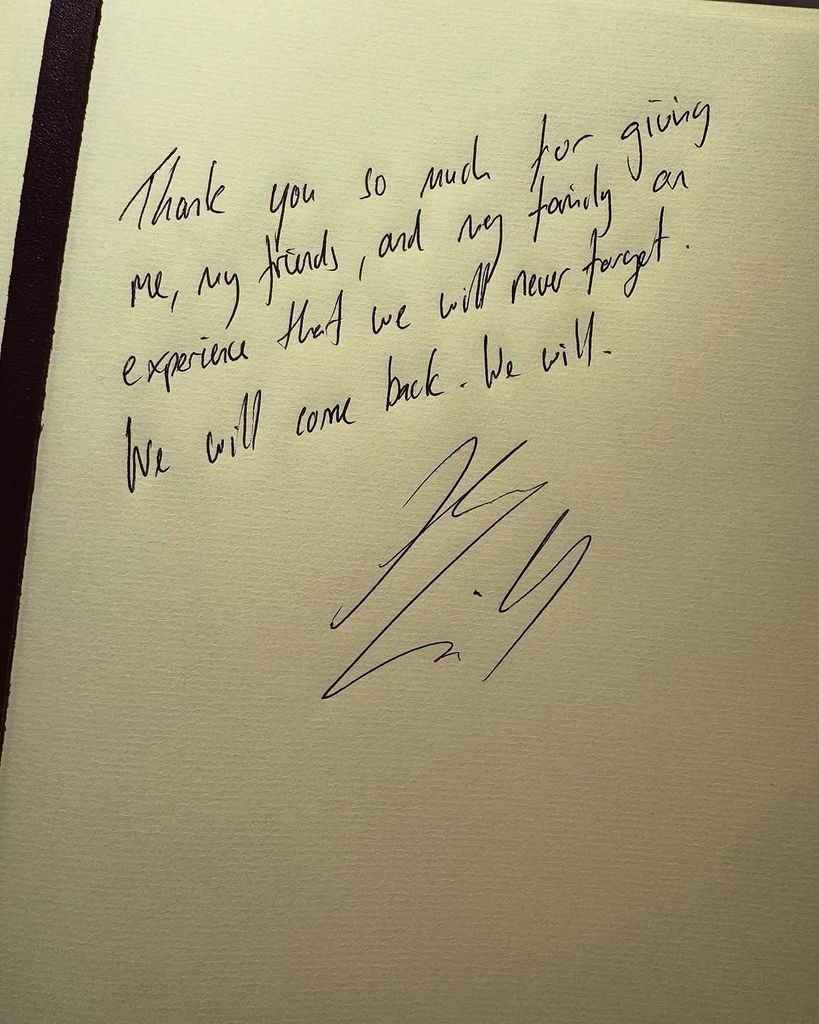 Thank you so much for giving
me, my friends, and my family an
experience that we will never forget.
We will come back. We will.